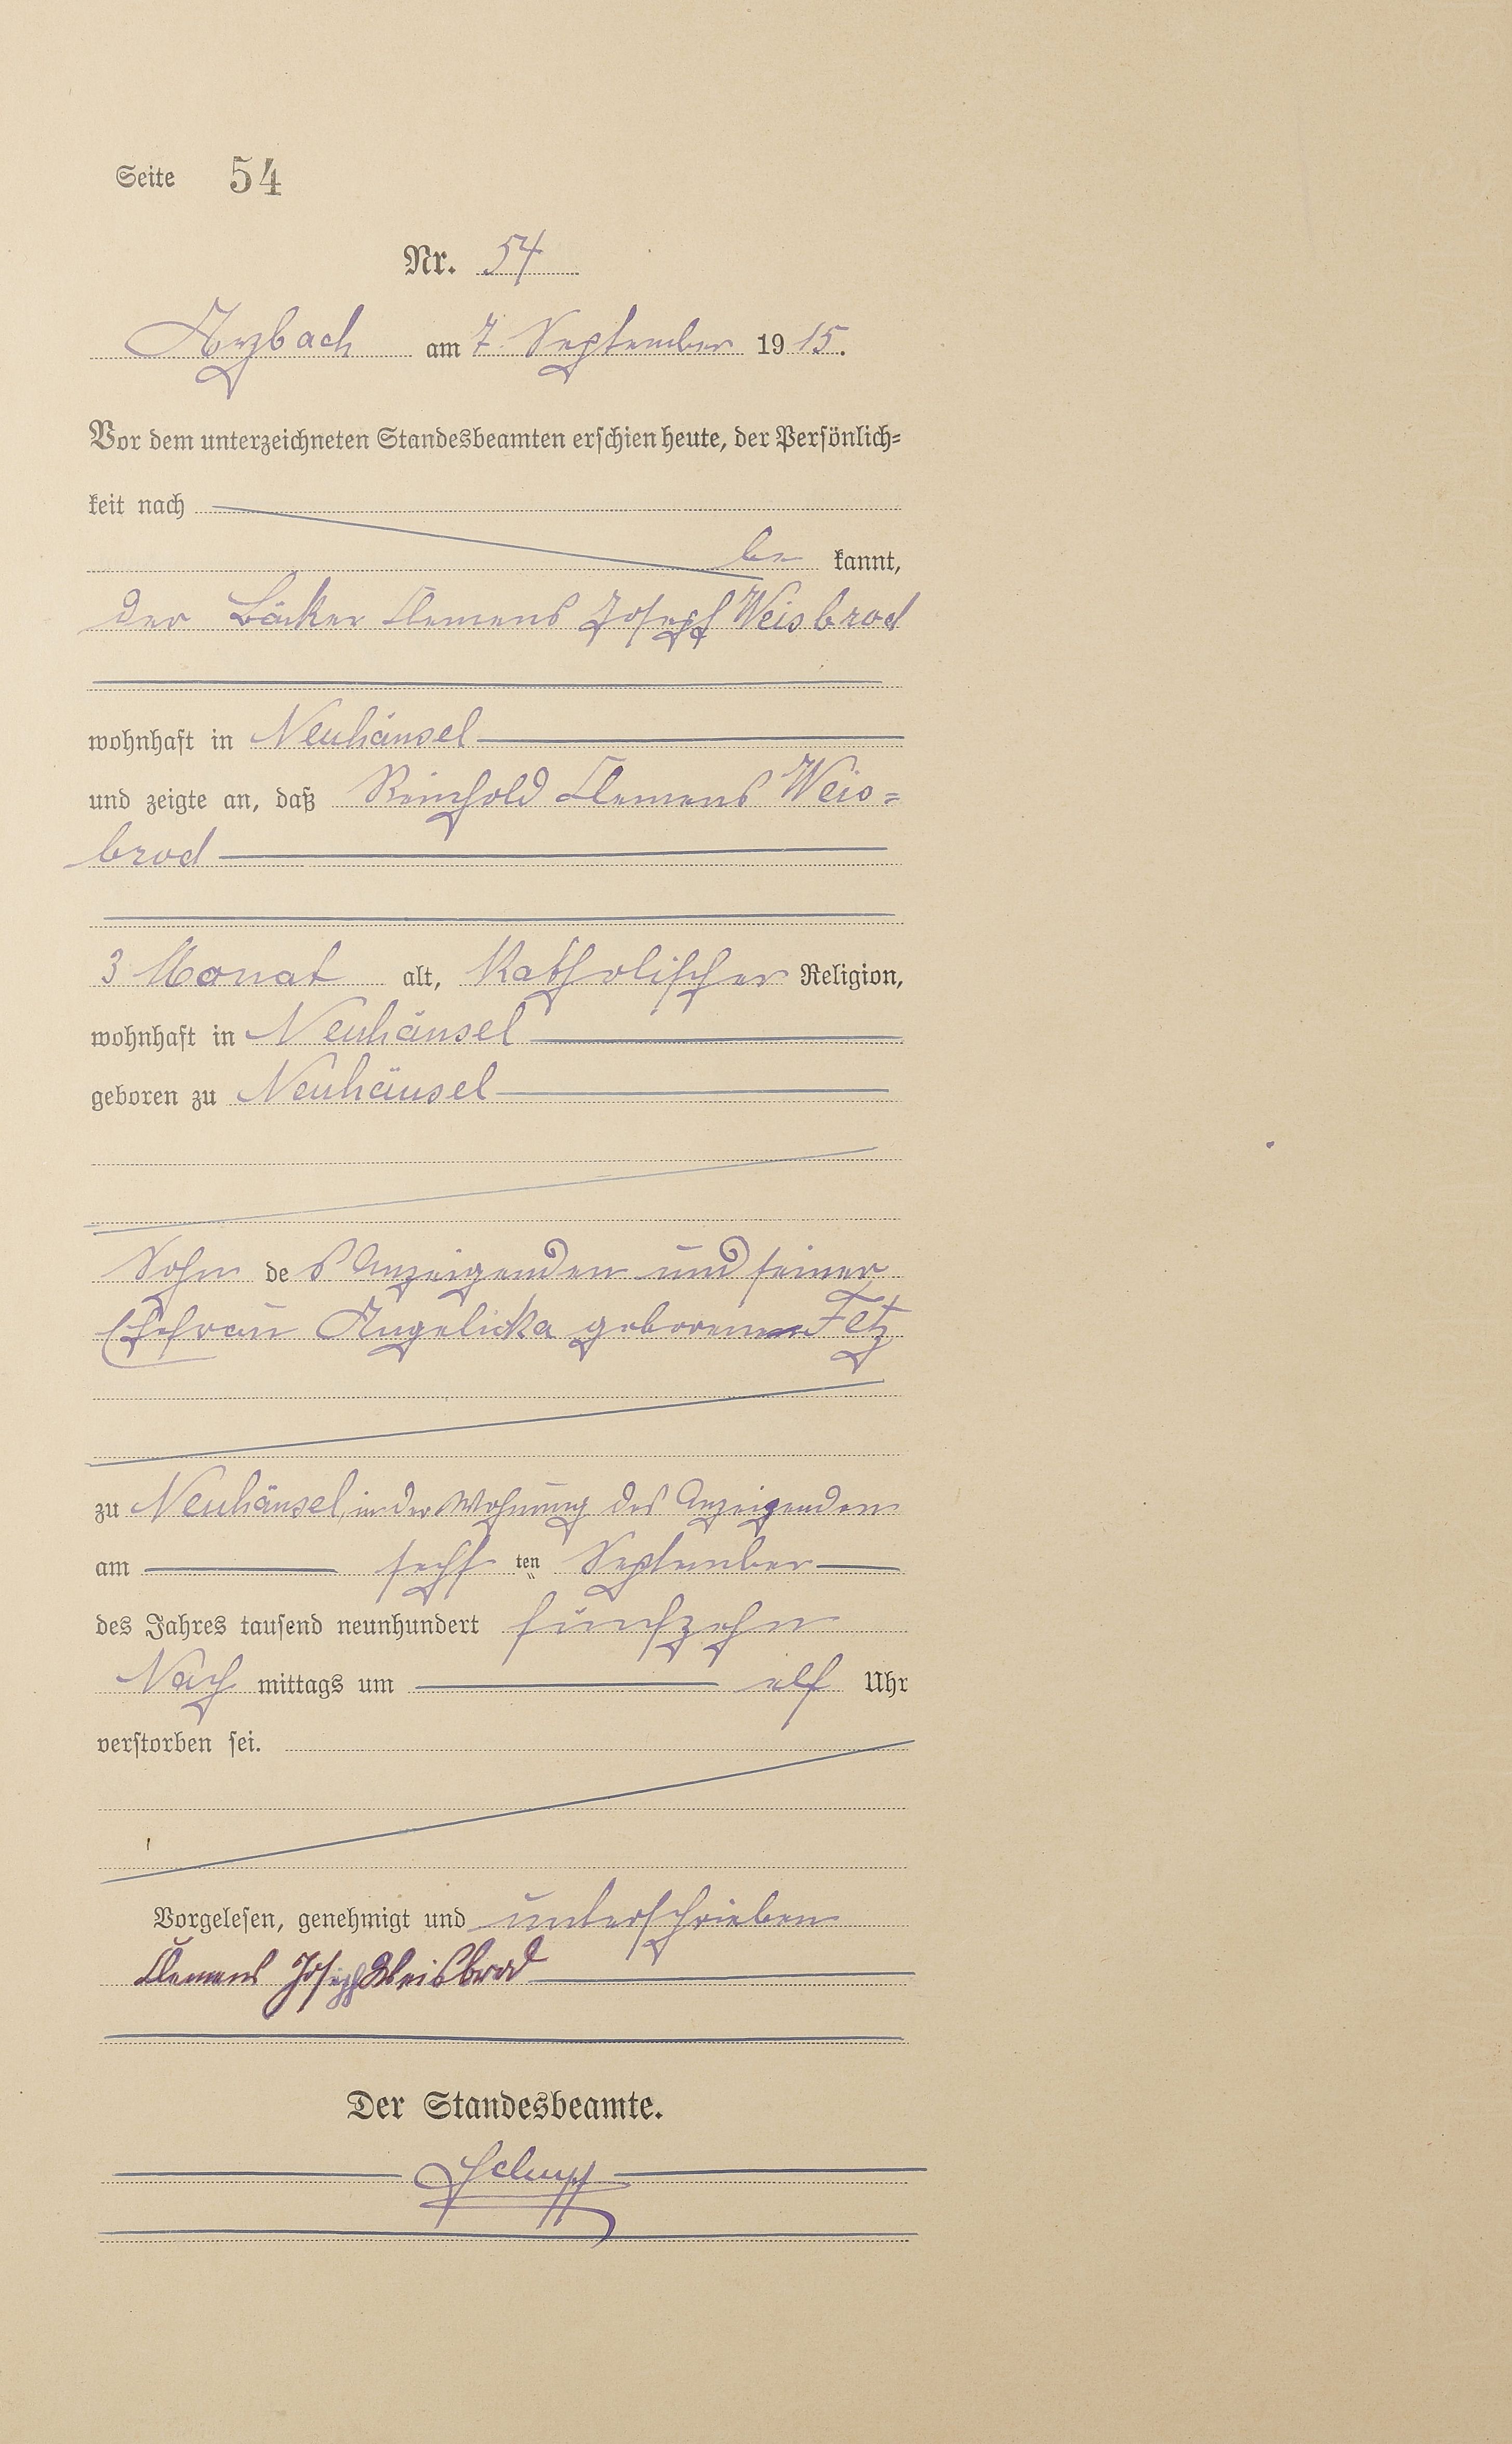 Seite 54
Nr. 54
Arzbach am 7. September 1915.
Vor dem unterzeichneten Standesbeamten erschien heute, der Persönlich=
keit nach
be kannt,
der Bäcker Clemens Joseph Weisbrod
wohnhaft in Neuhäusel
und zeigte an, daß Reinhold Clemens Weis=
brod
3 Monat alt, katholischer Religion,
wohnhaft in Neuhäusel
geboren zu Neuhäusel
Sohn des Anzeigenden und seiner
Ehefrau Angelicka geborenen Fetz
zu Neuhäusel, in der Wohnung des Anzeigenden
am sechsten September
des Jahres tausend neunhundert fünfzehn
Nach mittags um elf Uhr
verstorben sei.
Vorgelesen, genehmigt und unterschrieben
Clemens Joseph Weisbrod
Der Standesbeamte.